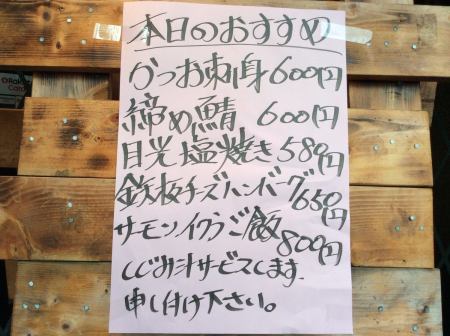 本日のおすすめ
かつお刺身600円
締め鯖 600円
目光塩焼き580円
鉄板チーズハンバーグ650円
サーモンイクラご飯800円
しじみ汁サービスします
申し付け下さい。
Rakuten
Card